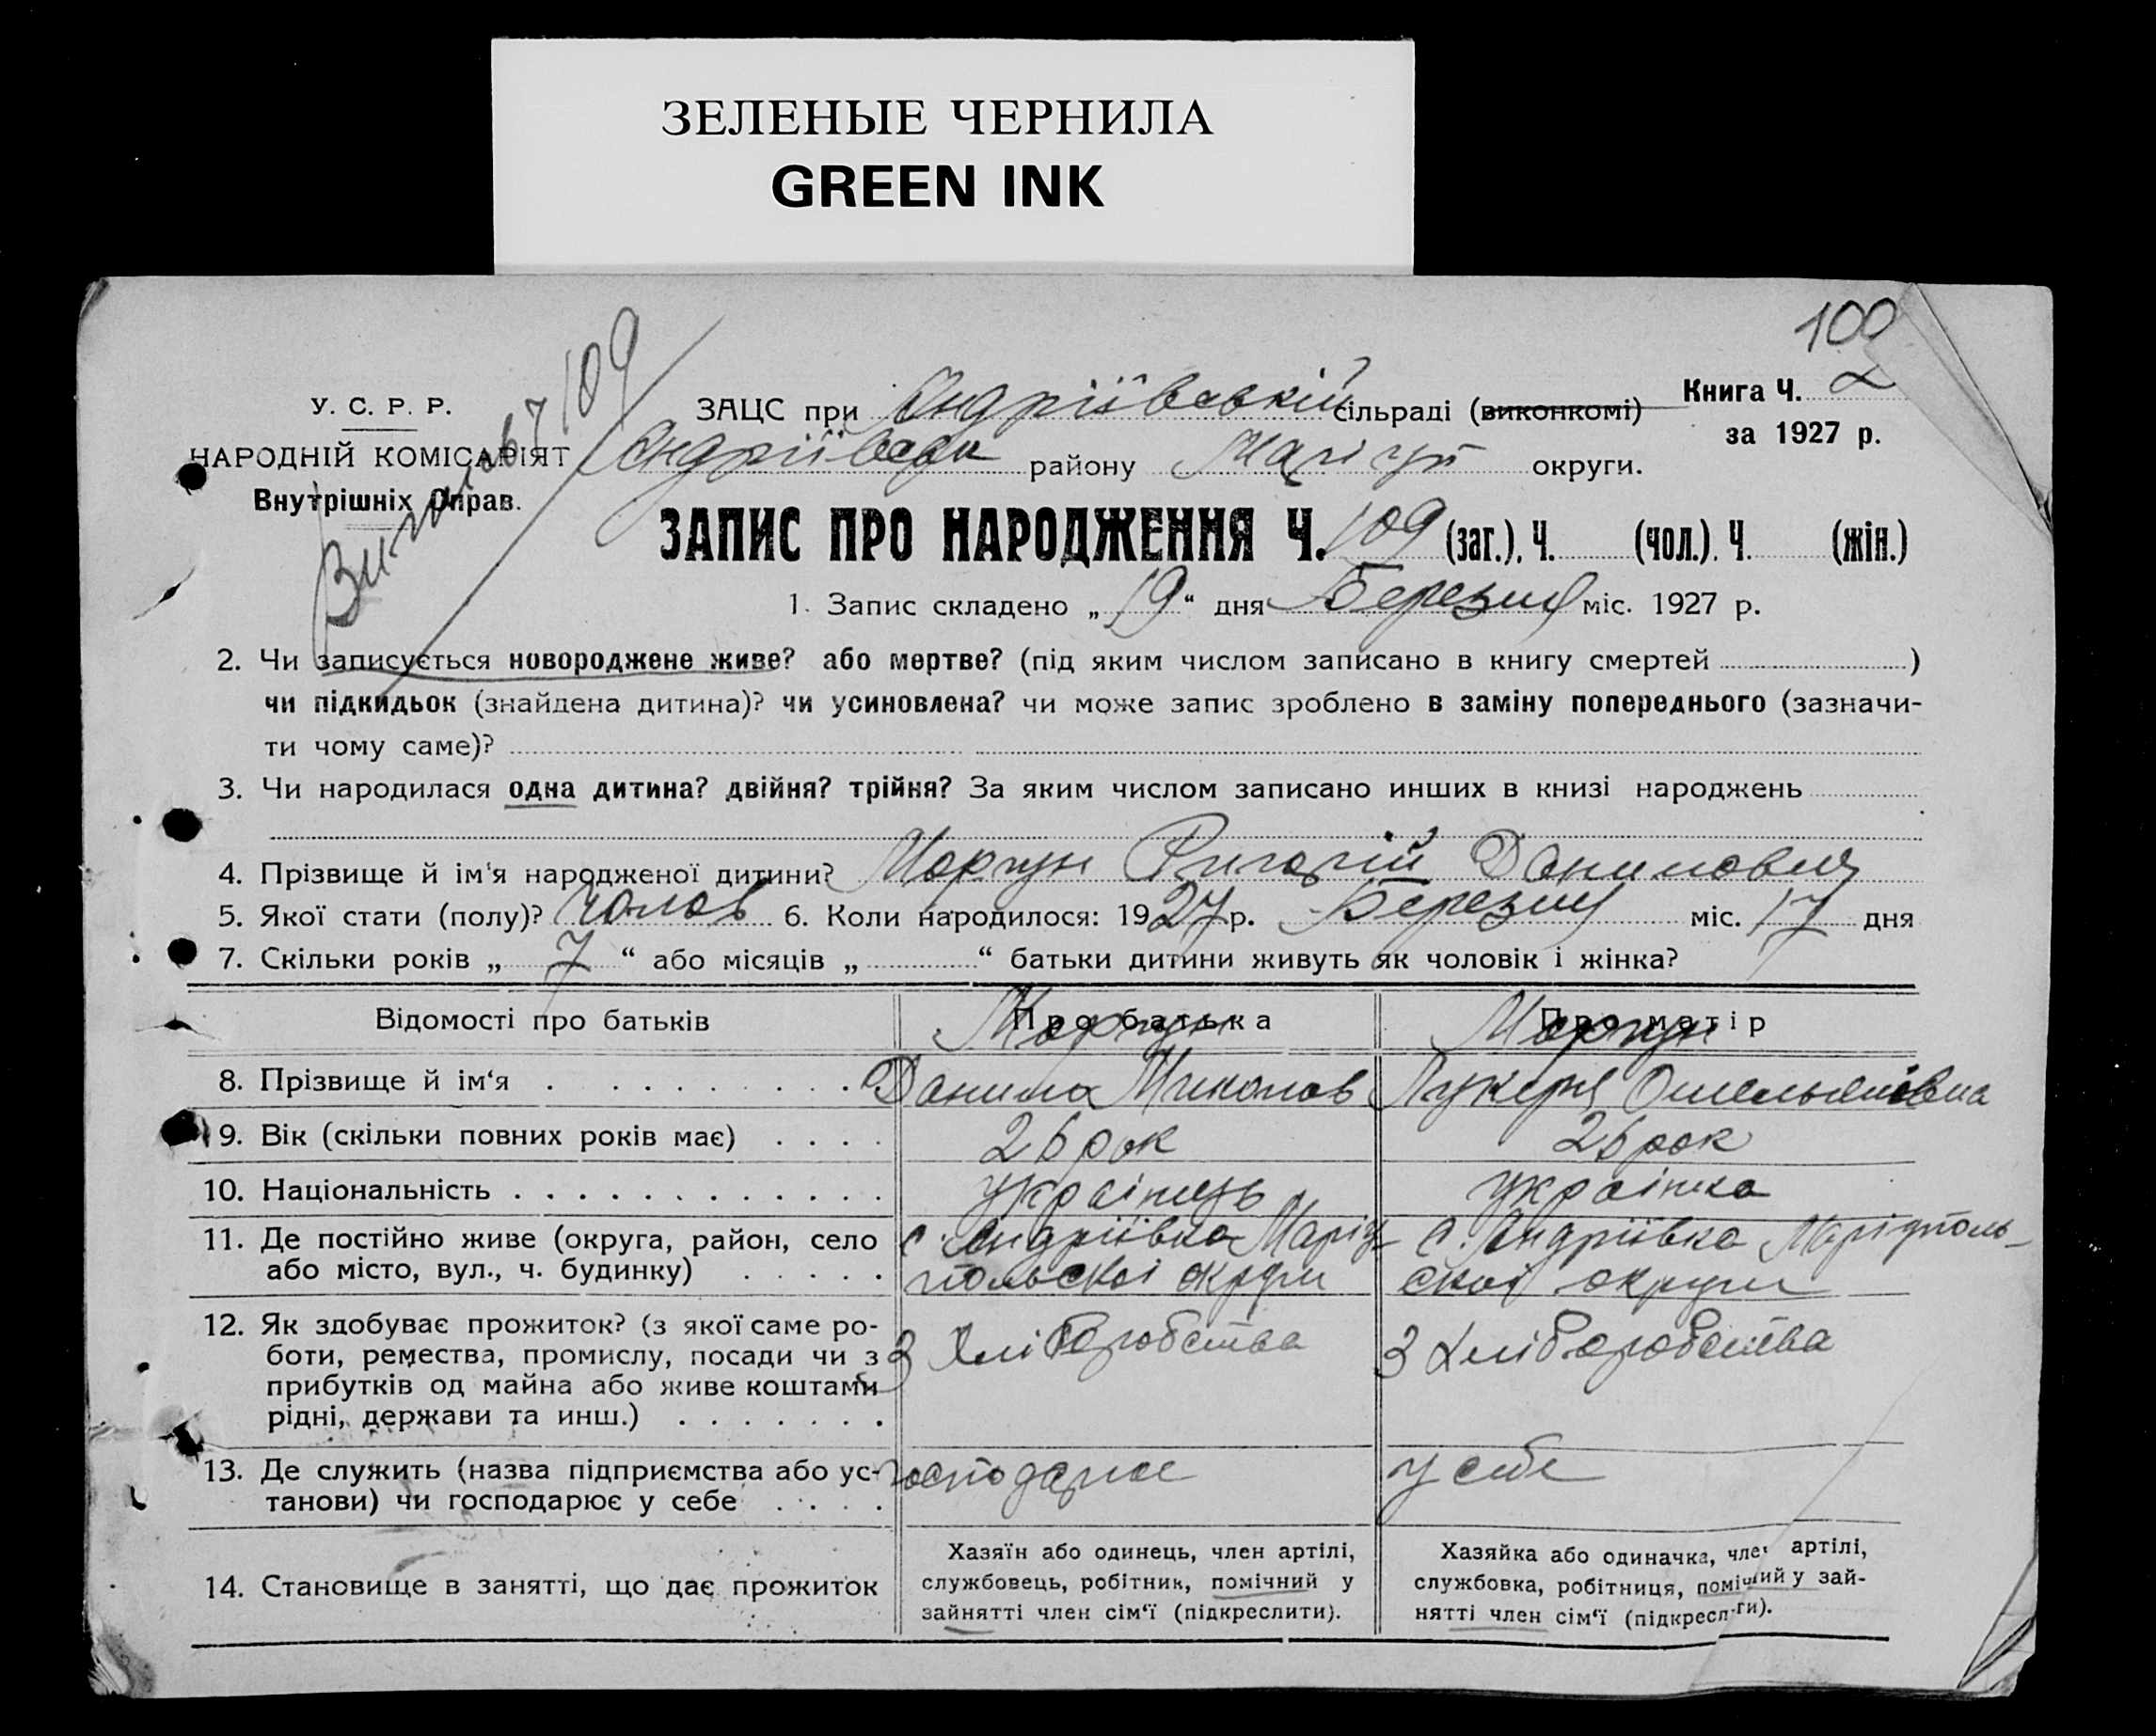 ЗЕЛЕНЫЕ ЧЕРНИЛА
GREEN INK
100
У. С. Р. Р.
НАРОДНІЙ КОМІСАРІЯТ
Внутрішніх Справ.
109
ЗАЦС при Андріївській сільраді (виконкомі)
Книга Ч. 2
за 1927 р.
району Маріуп округи.
ЗАПИС ПРО НАРОДЖЕННЯ Ч. 109 (заг.), Ч. (чол.), Ч. (жін.)
1. Запис складено „ 19 “ дня Березня міс. 1927 р.
2. Чи записується новороджене живе? або мертве? (під яким числом записано в книгу смертей )
чи підкидьок (знайдена дитина)? чи усиновлена? чи може запис зроблено в заміну попереднього (зазначи-
ти чому саме)?
3. Чи народилася одна дитина? двійня? трійня? За яким числом записано инших в книзі народжень
4. Прізвище й ім'я народженої дитини? Моргун Григорій Данилович
5. Якої стати (полу)? чолов 6. Коли народилося: 1927 р. Березня міс. 17 дня
7. Скільки років „ 7 “ або місяців „ “ батьки дитини живуть як чоловік і жінка?
Відомості про батьків
Про батька
Про матір
Моргун
Моргун
8. Прізвище й ім'я
Данило Миколов
Лукеря Омельянівна
9. Вік (скільки повних років має)
26 рок
26 рок
10. Національність
українець
українка
11. Де постійно живе (округа, район, село
або місто, вул., ч. будинку)
с. Андріївка Маріу-
польскої округи
с. Андріївка Маріуполь-
скої округи
12. Як здобуває прожиток? (з якої саме ро-
боти, ремества, промислу, посади чи з
прибутків од майна або живе коштами
рідні, держави та инш.)
З Хліборобства
З Хліборобства
13. Де служить (назва підприємства або ус-
танови) чи господарює у себе
господарює
у себе
14. Становище в занятті, що дає прожиток
Хазяїн або одинець, член артілі,
службовець, робітник, помічний у
зайнятті член сім'ї (підкреслити).
Хазяйка або одиначка, член артілі,
службовка, робітниця, помічний у зай-
нятті член сім'ї (підкреслити).